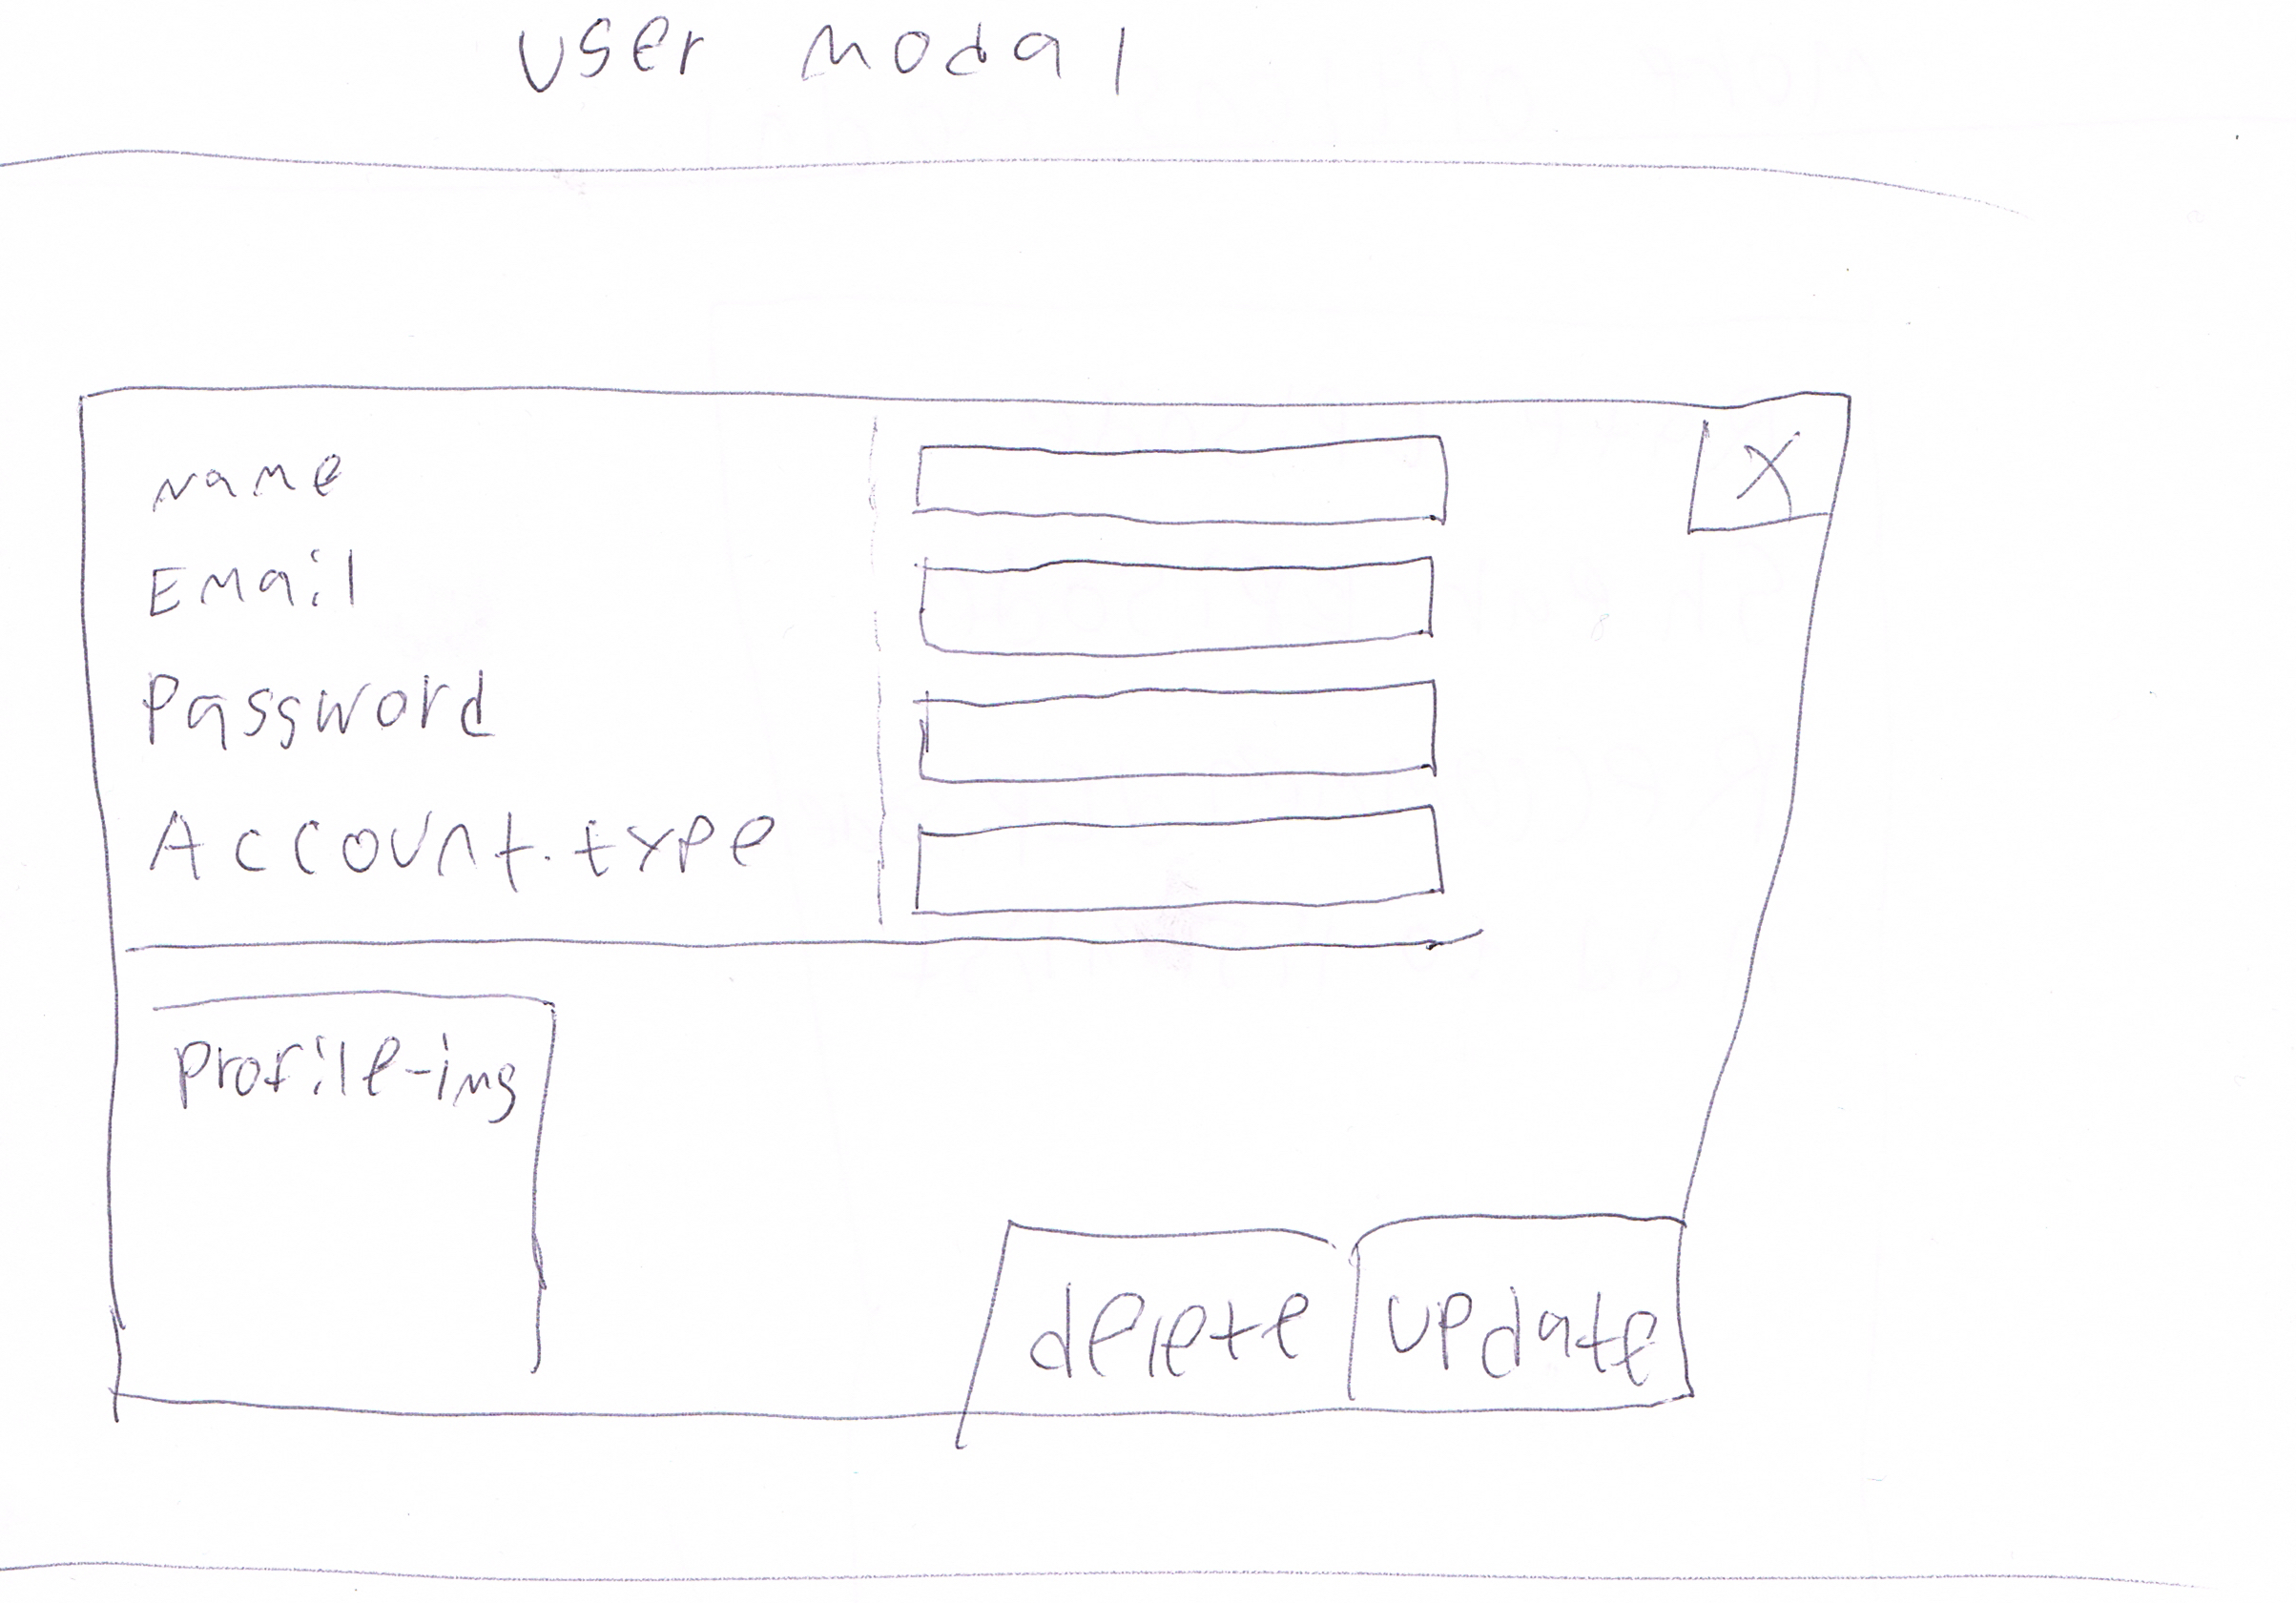 User modal
name
X
Email
Password
Account.type
Profile-img
delete
update